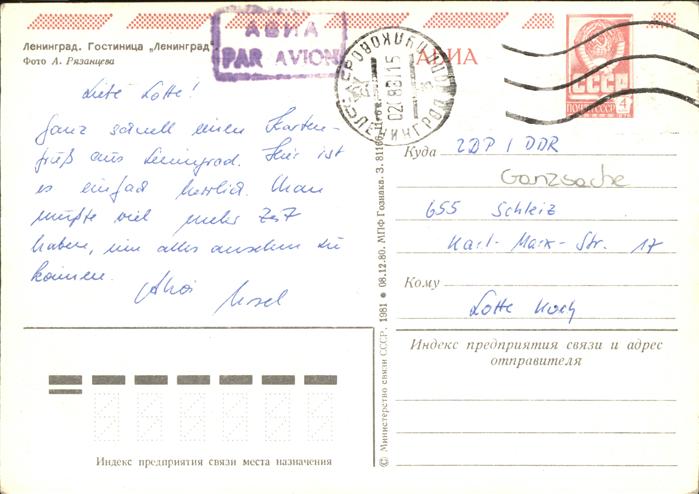 Ленинград. Гостиница „Ленинград"
Фото А. Рязанцева
АВИА
PAR AVION
АВИА
СССР
ПОЧТА СССР
4
ЛЕНИНГРАД
Liebe Lotte!
Ganz schnell einen Karten-
gruß aus Leningrad. Hier ist
es einfach herrlich. Man
müßte viel mehr Zeit
haben, um alles ansehen zu
können.
Ursel
Куда
DDR
Ganzsache
655 Schleiz
Karl-Marx-Str. 17
Кому
Lotte Koch
Индекс предприятия связи и адрес
отправителя
Индекс предприятия связи места назначения
© Министерство связи СССР. 1981 ● 08.12.80. МПФ Гознака. З. 81166.